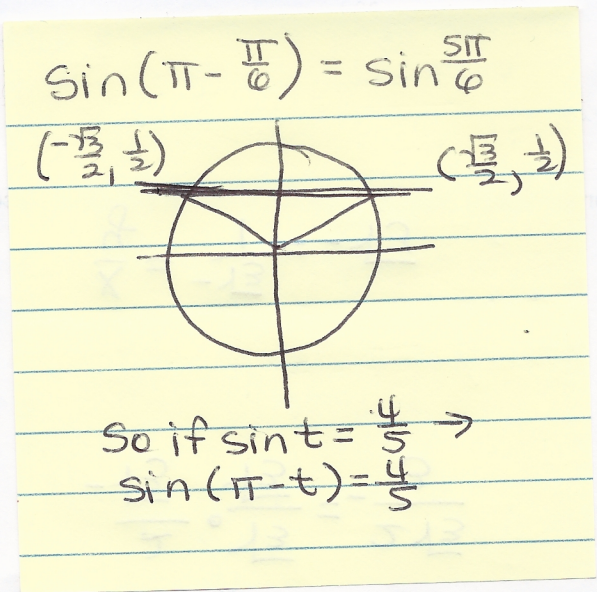 sin(π - π/6) = sin 5π/6
(-√3/2, 1/2)
(√3/2, 1/2)
So if sin t = 4/5 →
sin(π - t) = 4/5